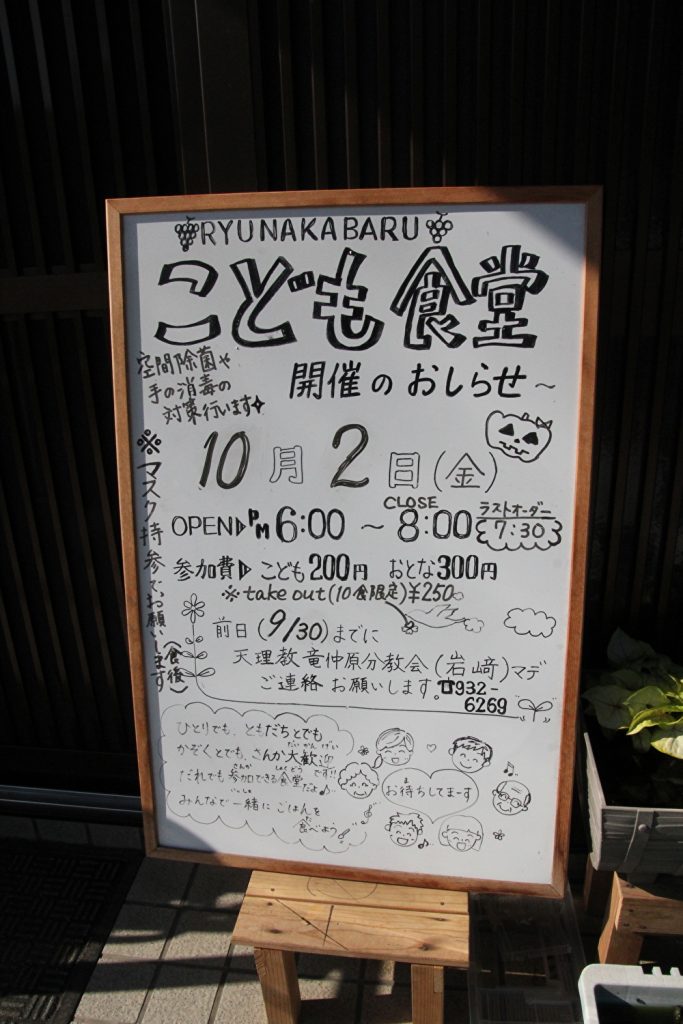 RYUNAKABARU
こども食堂
開催のおしらせ~
空間除菌や
手の消毒の
対策行います
※マスク持参でお願いします(食後)
10月2日(金)
OPEN▷PM 6:00 ~ CLOSE 8:00 ラストオーダー 7:30
参加費▷ こども200円 おとな300円
※take out(10食限定)¥250
前日(9/30)までに
天理教竜仲原分教会(岩﨑)マデ
ご連絡お願いします。☎932-
6269
ひとりでも、ともだちとでも
かぞくとでも、さんか大歓迎です!!
だれでも参加できる食堂だよ♪
みんなで一緒にごはんを
食べよう
お待ちしてまーす